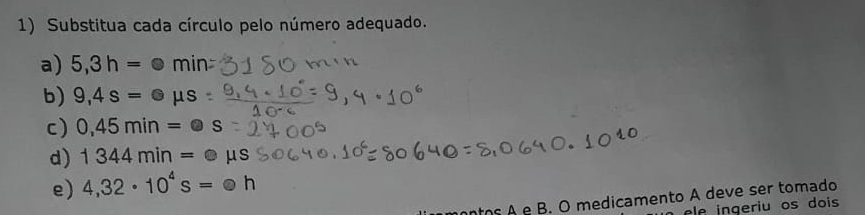 1) Substitua cada círculo pelo número adequado.
a) 5,3 h = ● min = 3180 min
b) 9,4 s = ● µs = 9,4 · 10⁰/10⁻⁶ = 9,4 · 10⁶
c) 0,45 min = ● s = 2700s
d) 1 344 min = ● µs 80640 . 10⁶ = 80640 = 8,0640 . 10¹⁰
e) 4,32 · 10⁴ s = ● h
A e B. O medicamento A deve ser tomado
ele ingeriu os dois